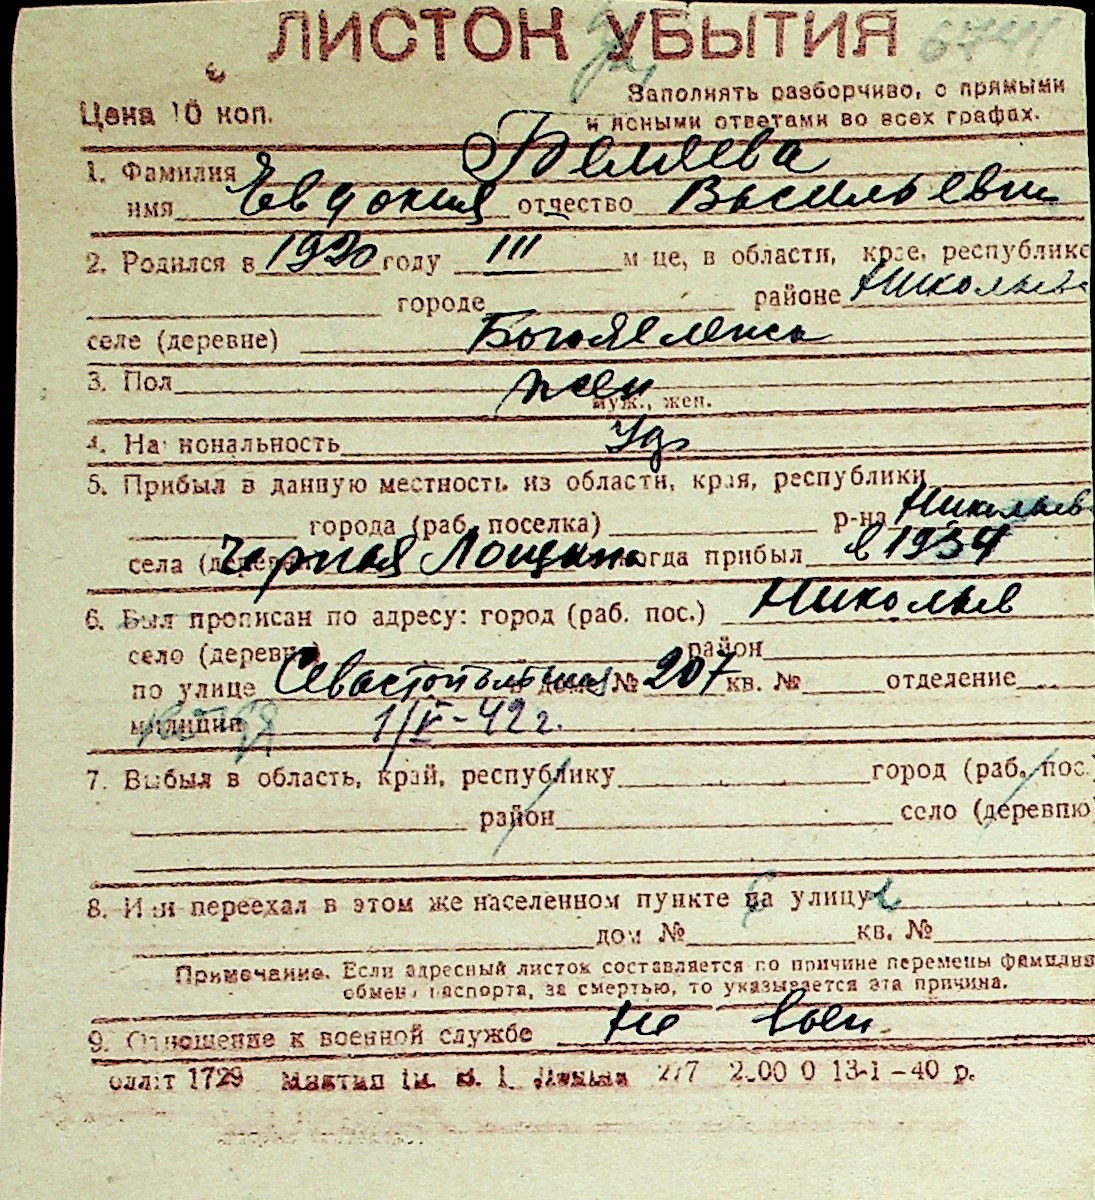 ЛИСТОК УБЫТИЯ 6741
Цена 10 коп.
Заполнять разборчиво, с прямыми
и ясными ответами во всех графах.
1. Фамилия Беляева
имя Евдокия отчество Васильевн
2. Родился в 1920 году III м-це, в области, крае, республике
городе районе Николаев
селе (деревне) Богоявленск
3. Пол жен
муж., жен.
4. Национальность
5. Прибыл в данную местность из области, края, республики
города (раб. поселка) р-на Николаев
села (деревни) Черная Лощина когда прибыл в 1934
6. Был прописан по адресу: город (раб. пос.) Николаев
село (деревня) район
по улице Севастопольская дом № 207 кв. № отделение
милиции 1/V-42 г.
7. Выбыл в область, край, республику город (раб. пос.)
район село (деревню)
8. Или переехал в этом же населенном пункте на улицу
дом № кв. №
Примечание. Если адресный листок составляется по причине перемены фамилии
обмена паспорта, за смертью, то указывается эта причина.
9. Отношение к военной службе не воен.
1729 2.00 0 13-1-40 р.